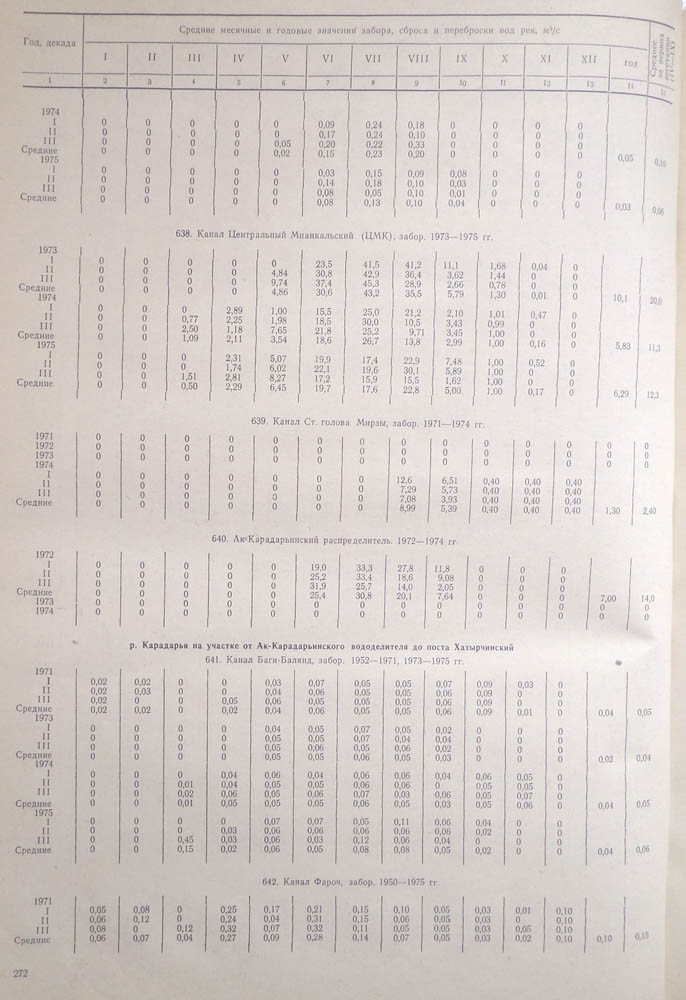 Год, декада Средние месячные и годовые значения забора, сброса и переброски вод рек, м³/с Среднее за период вегетации (IV—IX)
I II III IV V VI VII VIII IX X XI XII год
1 2 3 4 5 6 7 8 9 10 11 12 13 14 15
1974
I 0 0 0 0 0 0,09 0,24 0,18 0 0 0 0
II 0 0 0 0 0 0,17 0,24 0,10 0 0 0 0
III 0 0 0 0 0,05 0,20 0,22 0,33 0 0 0 0
Средние 0 0 0 0 0,02 0,15 0,23 0,20 0 0 0 0 0,05 0,10
1975
I 0 0 0 0 0 0,03 0,15 0,09 0,08 0 0 0
II 0 0 0 0 0 0,14 0,18 0,10 0,03 0 0 0
III 0 0 0 0 0 0,08 0,05 0,10 0,01 0 0 0
Средние 0 0 0 0 0 0,08 0,13 0,10 0,04 0 0 0 0,03 0,06
638. Канал Центральный Мианкальский (ЦМК), забор. 1973—1975 гг.
1973
I 0 0 0 0 0 23,5 41,5 41,2 11,1 1,68 0,04 0
II 0 0 0 0 4,84 30,8 42,9 36,4 3,62 1,44 0 0
III 0 0 0 0 9,74 37,4 45,3 28,9 2,66 0,78 0 0
Средние 0 0 0 0 4,86 30,6 43,2 35,5 5,79 1,30 0,01 0 10,1 20,0
1974
I 0 0 0 2,89 1,00 15,5 25,0 21,2 2,10 1,01 0,47 0
II 0 0 0,77 2,25 1,98 18,5 30,0 10,5 3,43 0,99 0 0
III 0 0 2,50 1,18 7,65 21,8 25,2 9,71 3,45 1,00 0 0
Средние 0 0 1,09 2,11 3,54 18,6 26,7 13,8 2,99 1,00 0,16 0 5,83 11,3
1975
I 0 0 0 2,31 5,07 19,9 17,4 22,9 7,48 1,00 0,52 0
II 0 0 0 1,74 6,02 22,1 19,6 30,1 5,89 1,00 0 0
III 0 0 1,51 2,81 8,27 17,2 15,9 15,5 1,62 1,00 0 0
Средние 0 0 0,50 2,29 6,45 19,7 17,6 22,8 5,00 1,00 0,17 0 6,29 12,3
639. Канал Ст. голова Мирзы, забор. 1971—1974 гг.
1971 0 0 0 0 0 0 0 0 0 0 0 0 0 0
1972 0 0 0 0 0 0 0 0 0 0 0 0 0 0
1973 0 0 0 0 0 0 0 0 0 0 0 0 0 0
1974
I 0 0 0 0 0 0 0 12,6 6,51 0,40 0,40 0,40
II 0 0 0 0 0 0 0 7,29 5,73 0,40 0,40 0,40
III 0 0 0 0 0 0 0 7,08 3,93 0,40 0,40 0,40
Средние 0 0 0 0 0 0 0 8,99 5,39 0,40 0,40 0,40 1,30 2,40
640. Ак-Карадарьинский распределитель. 1972—1974 гг
1972
I 0 0 0 0 0 19,0 33,3 27,8 11,8 0 0 0
II 0 0 0 0 0 25,2 33,4 18,6 9,08 0 0 0
III 0 0 0 0 0 31,9 25,7 14,0 2,05 0 0 0
Средние 0 0 0 0 0 25,4 30,8 20,1 7,64 0 0 0 7,00 14,0
1973 0 0 0 0 0 0 0 0 0 0 0 0 0 0
1974 0 0 0 0 0 0 0 0 0 0 0 0 0 0
р. Карадарья на участке от Ак-Карадарьинского вододелителя до поста Хатырчинский
641. Канал Баги-Баланд, забор. 1952—1971, 1973—1975 гг.
1971
I 0,02 0,02 0 0 0,03 0,07 0,05 0,05 0,07 0,09 0,03 0
II 0,02 0,03 0 0 0,04 0,06 0,05 0,05 0,06 0,09 0 0
III 0,02 0 0 0,05 0,06 0,05 0,05 0,05 0,06 0,09 0 0
Средние 0,02 0,02 0 0,02 0,04 0,06 0,05 0,05 0,06 0,09 0,01 0 0,04 0,05
1973
I 0 0 0 0 0,04 0,05 0,07 0,05 0,02 0 0 0
II 0 0 0 0 0,05 0,05 0,07 0,04 0,04 0 0 0
III 0 0 0 0 0,05 0,06 0,05 0,06 0,02 0 0 0
Средние 0 0 0 0 0,05 0,05 0,06 0,05 0,03 0 0 0 0,02 0,04
1974
I 0 0 0 0,04 0,06 0,04 0,06 0,06 0,04 0,06 0,05 0
II 0 0 0,01 0,04 0,05 0,05 0,06 0,06 0 0,05 0,05 0
III 0 0 0,02 0,06 0,05 0,06 0,07 0,03 0,06 0,05 0,07 0
Средние 0 0 0,01 0,05 0,05 0,05 0,06 0,05 0,03 0,05 0,06 0 0,04 0,05
1975
I 0 0 0 0 0,07 0,07 0,05 0,11 0,06 0,04 0 0
II 0 0 0 0,03 0,06 0,06 0,06 0,06 0,06 0,02 0 0
III 0 0 0,45 0,03 0,06 0,03 0,12 0,06 0,04 0 0 0
Средние 0 0 0,15 0,02 0,06 0,05 0,08 0,08 0,05 0,02 0 0 0,04 0,06
642. Канал Фароч, забор. 1950—1975 гг.
1971
I 0,05 0,08 0 0,25 0,17 0,21 0,15 0,10 0,05 0,03 0,01 0,10
II 0,06 0,12 0 0,24 0,04 0,31 0,15 0,06 0,05 0,03 0 0,10
III 0,08 0 0,12 0,32 0,07 0,32 0,11 0,05 0,05 0,03 0,05 0,10
Средние 0,06 0,07 0,04 0,27 0,09 0,28 0,14 0,07 0,05 0,03 0,02 0,10 0,10 0,15
272